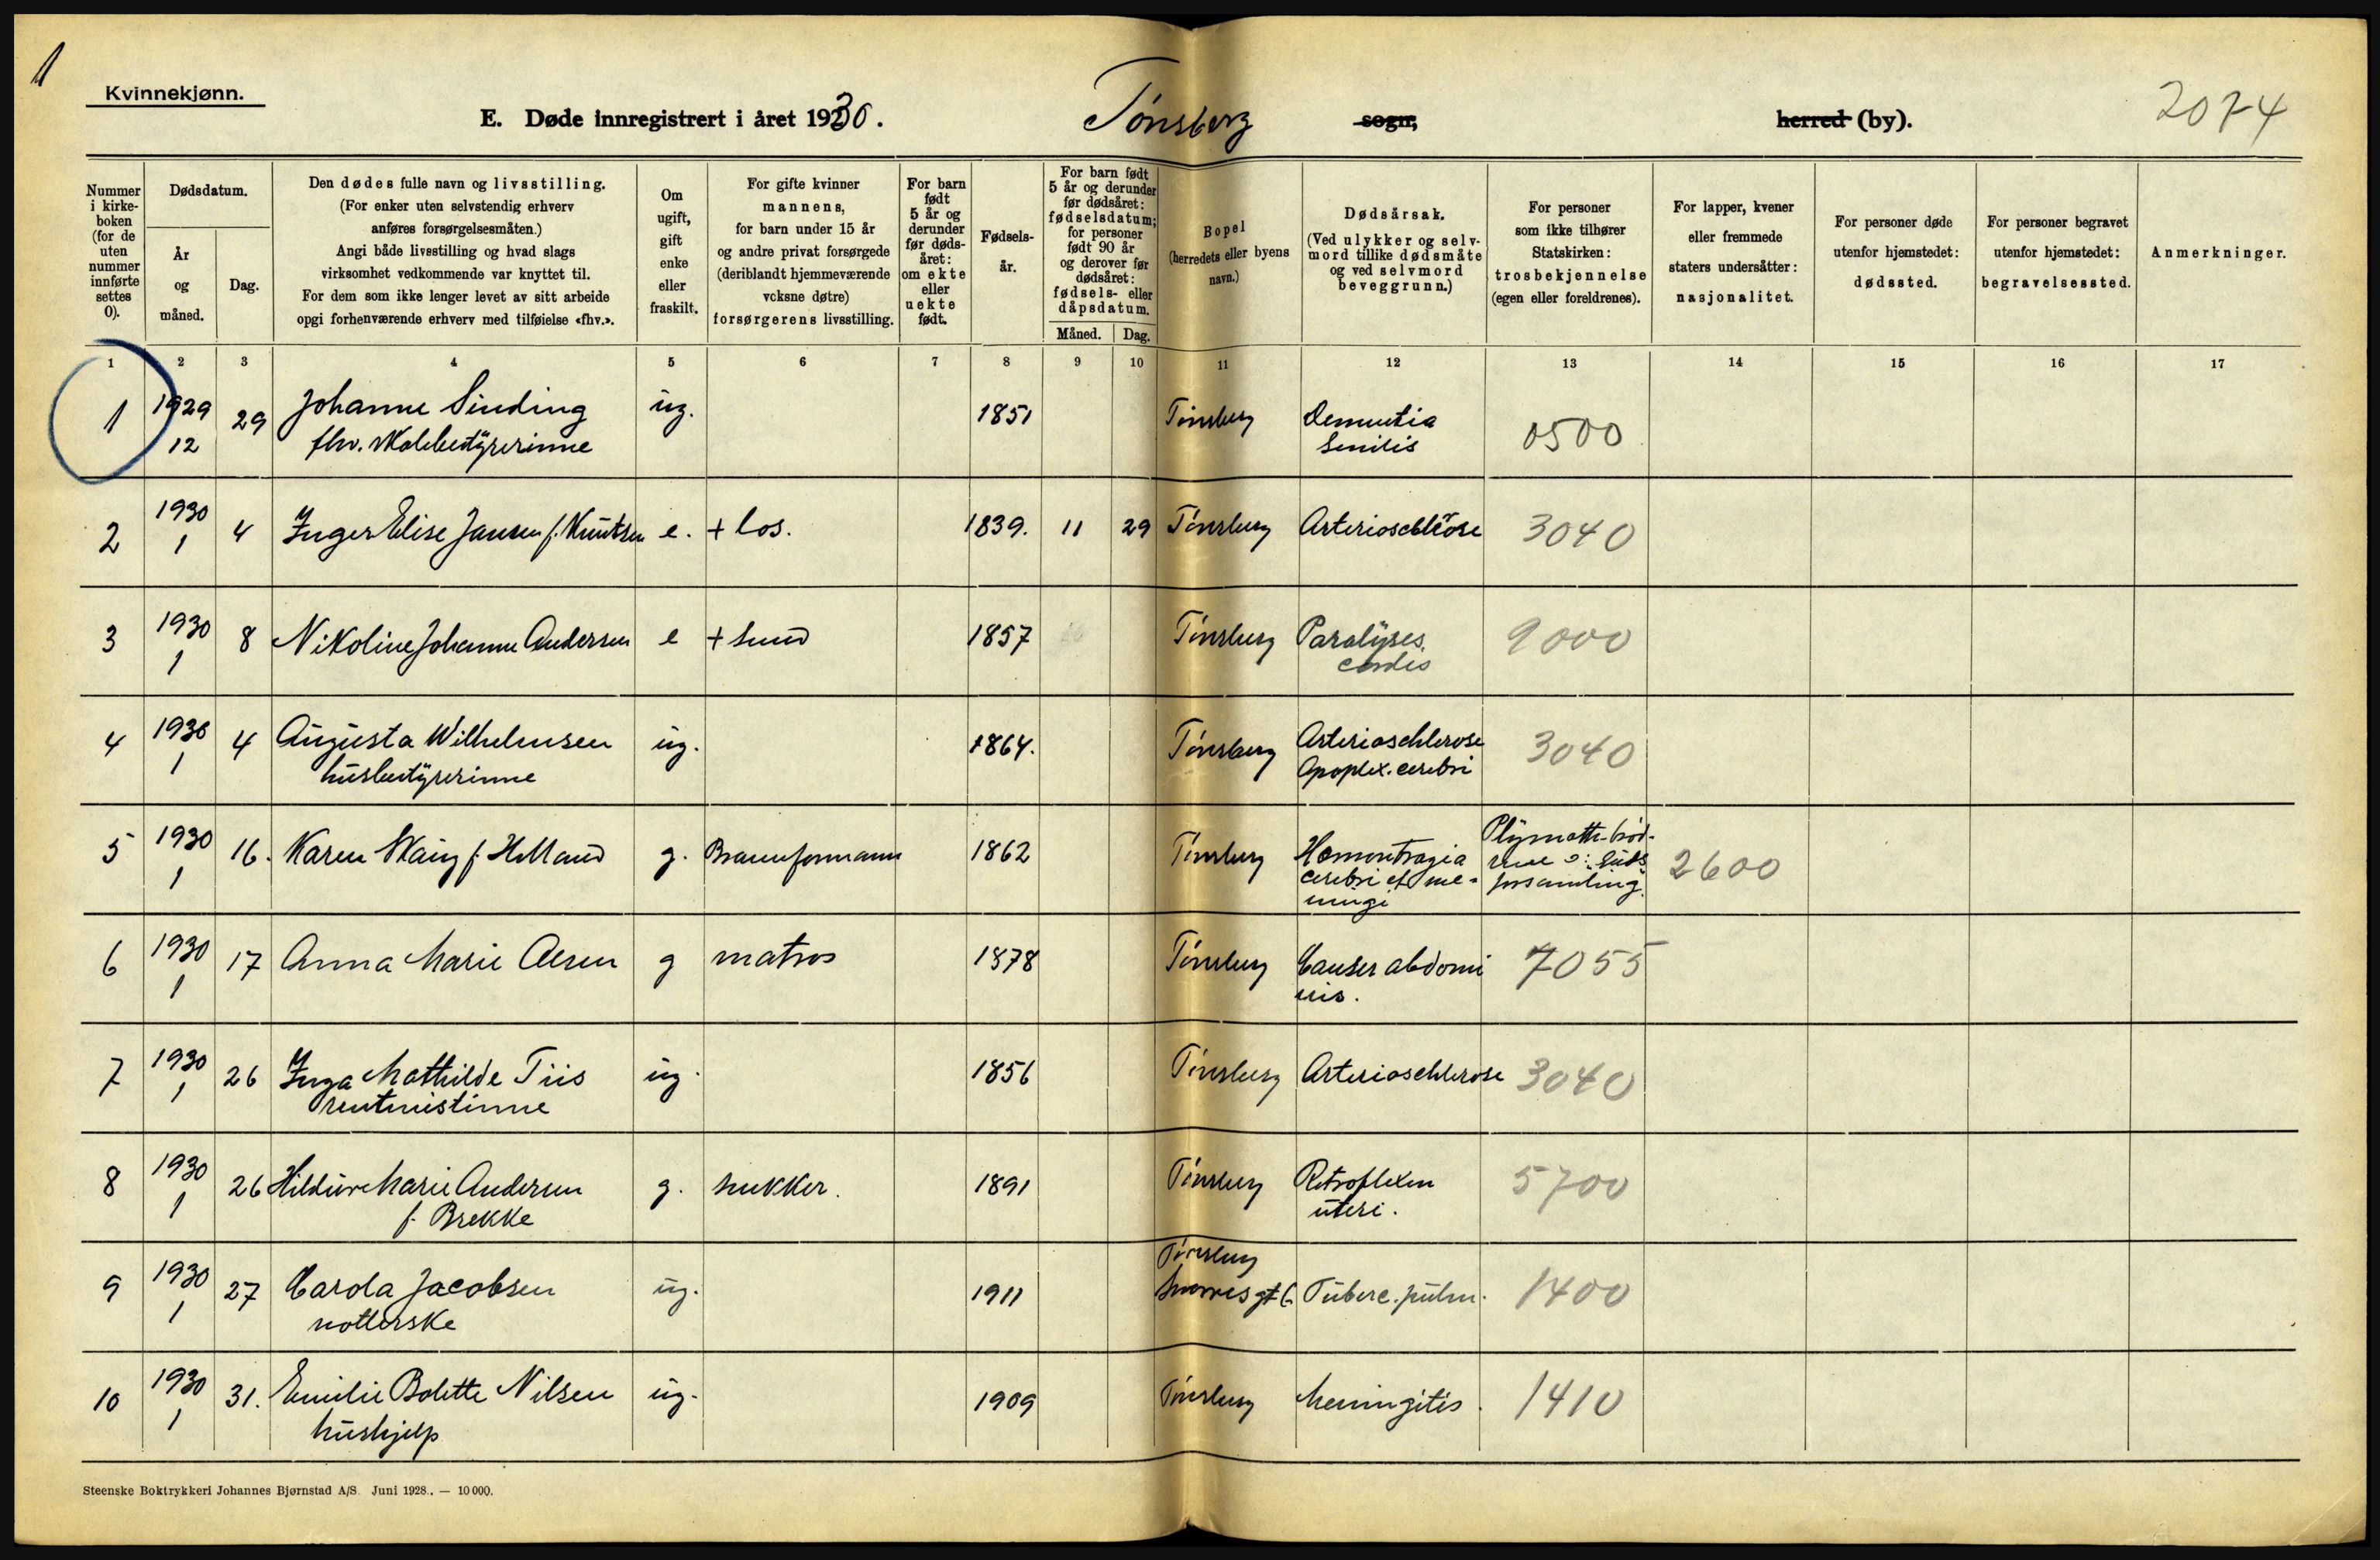 1
Kvinnekjønn.
E. Døde innregistrert i året 1930.
Tønsberg
sogn,
herred (by).
2074
Nummer i kirke- boken (for de uten nummer innførte settes 0).
Dødsdatum.
År og måned.
Dag.
Den dødes fulle navn og livsstilling.
(For enker uten selvstendig erhverv
anføres forsørgelsesmåten.)
Angi både livsstilling og hvad slags
virksomhet vedkommende var knyttet til.
For dem som ikke lenger levet av sitt arbeide
opgi forhenværende erhverv med tilføielse «fhv.».
Om ugift, gift enke eller fraskilt.
For gifte kvinner
mannens,
for barn under 15 år
og andre privat forsørgede
(deriblandt hjemmeværende
voksne døtre)
forsørgerens livsstilling.
For barn født 5 år og derunder før døds- året: om ekte eller uekte født.
Fødsels- år.
For barn født 5 år og derunder før dødsåret: fødselsdatum; for personer født 90 år og derover før dødsåret: fødsels- eller dåpsdatum.
Måned.
Dag.
Bopel
(herredets eller byens
navn.)
Dødsårsak.
(Ved ulykker og selv-
mord tillike dødsmåte
og ved selvmord
beveggrunn.)
For personer
som ikke tilhører
Statskirken:
trosbekjennelse
(egen eller foreldrenes).
For lapper, kvener
eller fremmede
staters undersåtter:
nasjonalitet.
For personer døde
utenfor hjemstedet:
dødssted.
For personer begravet
utenfor hjemstedet:
begravelsessted.
Anmerkninger.
1 2 3 4 5 6 7 8 9 10 11 12 13 14 15 16 17
1 1929 29 Johanne Sinding ug. 1851 Tønsberg Dementia 0500
12 fhv. skolebestyrerinne senilis
2 1930 4 Inger Elise Jansen f. Knutsen e. + los. 1839. 11 29 Tønsberg Arterioschlerose 3040
1
3 1930 8 Nikoline Johanne Andersen e + smed 1857 Tønsberg Paralyses 9000
1 cordis
4 1930 4 Augusta Wilhelmsen ug. 1864. Tønsberg Arterioschlerose 3040
1 husbestyrerinne Apoplex. cerebri
5 1930 16. Karen f. Holland g. 1862 Tønsberg Hæmorrhagia Plymouth-brød-
1 cerebri et me- rene 2600
ningi forsamling.
6 1930 17 Anna Marie Olsen g matros 1878 Tønsberg Cancer abdomi 7055
1 nis.
7 1930 26 Inga Mathilde Tiis ug. 1856 Tønsberg Arterioschlerose 3040
1 rentenistinne
8 1930 26 Hildur Marie Andersen g. snekker. 1891 Tønsberg Retroflexen 5700
1 f. Brekke uteri.
9 1930 27 Carola Jacobsen ug. 1911 Tønsberg
1 Snorres gt 6 Tuberc. pulm. 1400
notterske
10 1930 31. Emilie Bolette Nilsen ug. 1909 Tønsberg Meningitis. 1410
1 hushjelp
Steenske Boktrykkeri Johannes Bjørnstad A/S. Juni 1928. — 10 000.